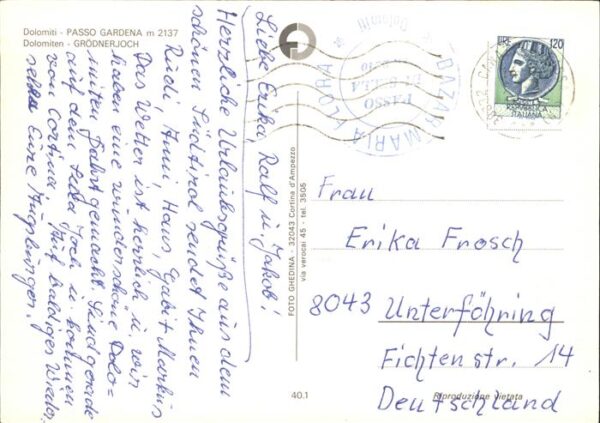 Dolomiti - PASSO GARDENA m 2137
Dolomiten - GRÖDNERJOCH
Liebe Erika, Ralf u. Jakob!
Herzliche Urlaubsgrüße aus dem
schönen Südtirol sendet Ihnen
Rudi, Anni, Hans, Gabi + Markus
Das Wetter ist herrlich u. wir
haben eine wunderschöne Dolo=
miten Fahrt gemacht. Sind gerade
auf dem Sella Joch u. kommen
von Cortina. Auf baldiges Wieder
sehen Eure Augsburger.
FOTO GHEDINA - 32043 Cortina d'Ampezzo
via verocai 45 - tel. 3505
40.1
BAZAR MARIA FLORA
PASSO
Dolomiti
LIRE 120
REPVBBLICA
ITALIANA
Frau
Erika Frosch
8043 Unterföhring
Fichtenstr. 14
Deutschland
Riproduzione vietata